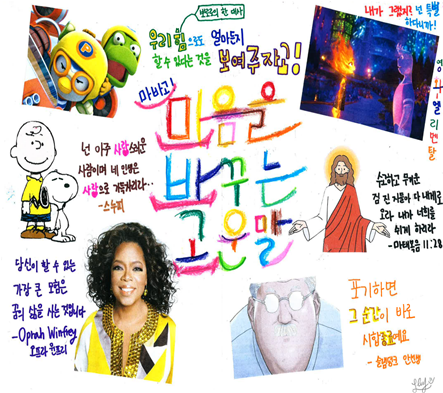 뽀로로의 한 대사
우리 힘으로도 얼마든지
할 수 있다는 것을 보여주자고!
내가 그랬지? 넌 특별
하다니까!
영화 엘리멘탈
마바고!
마음을
바꾸는
고운말
넌 아주 사랑스러운
사람이며 네 인생은
사랑으로 가득하리라..
-스누피
수고하고 무거운
짐 진 자들아 다 내게로
오라 내가 너희를
쉬게 하리라
- 마태복음 11:28
당신이 할 수 있는
가장 큰 모험은
꿈의 삶을 사는 것입니다
-Oprah Winfrey
오프라 윈프리
포기하면
그 순간이 바로
시합종료예요
- 슬램덩크 안선생